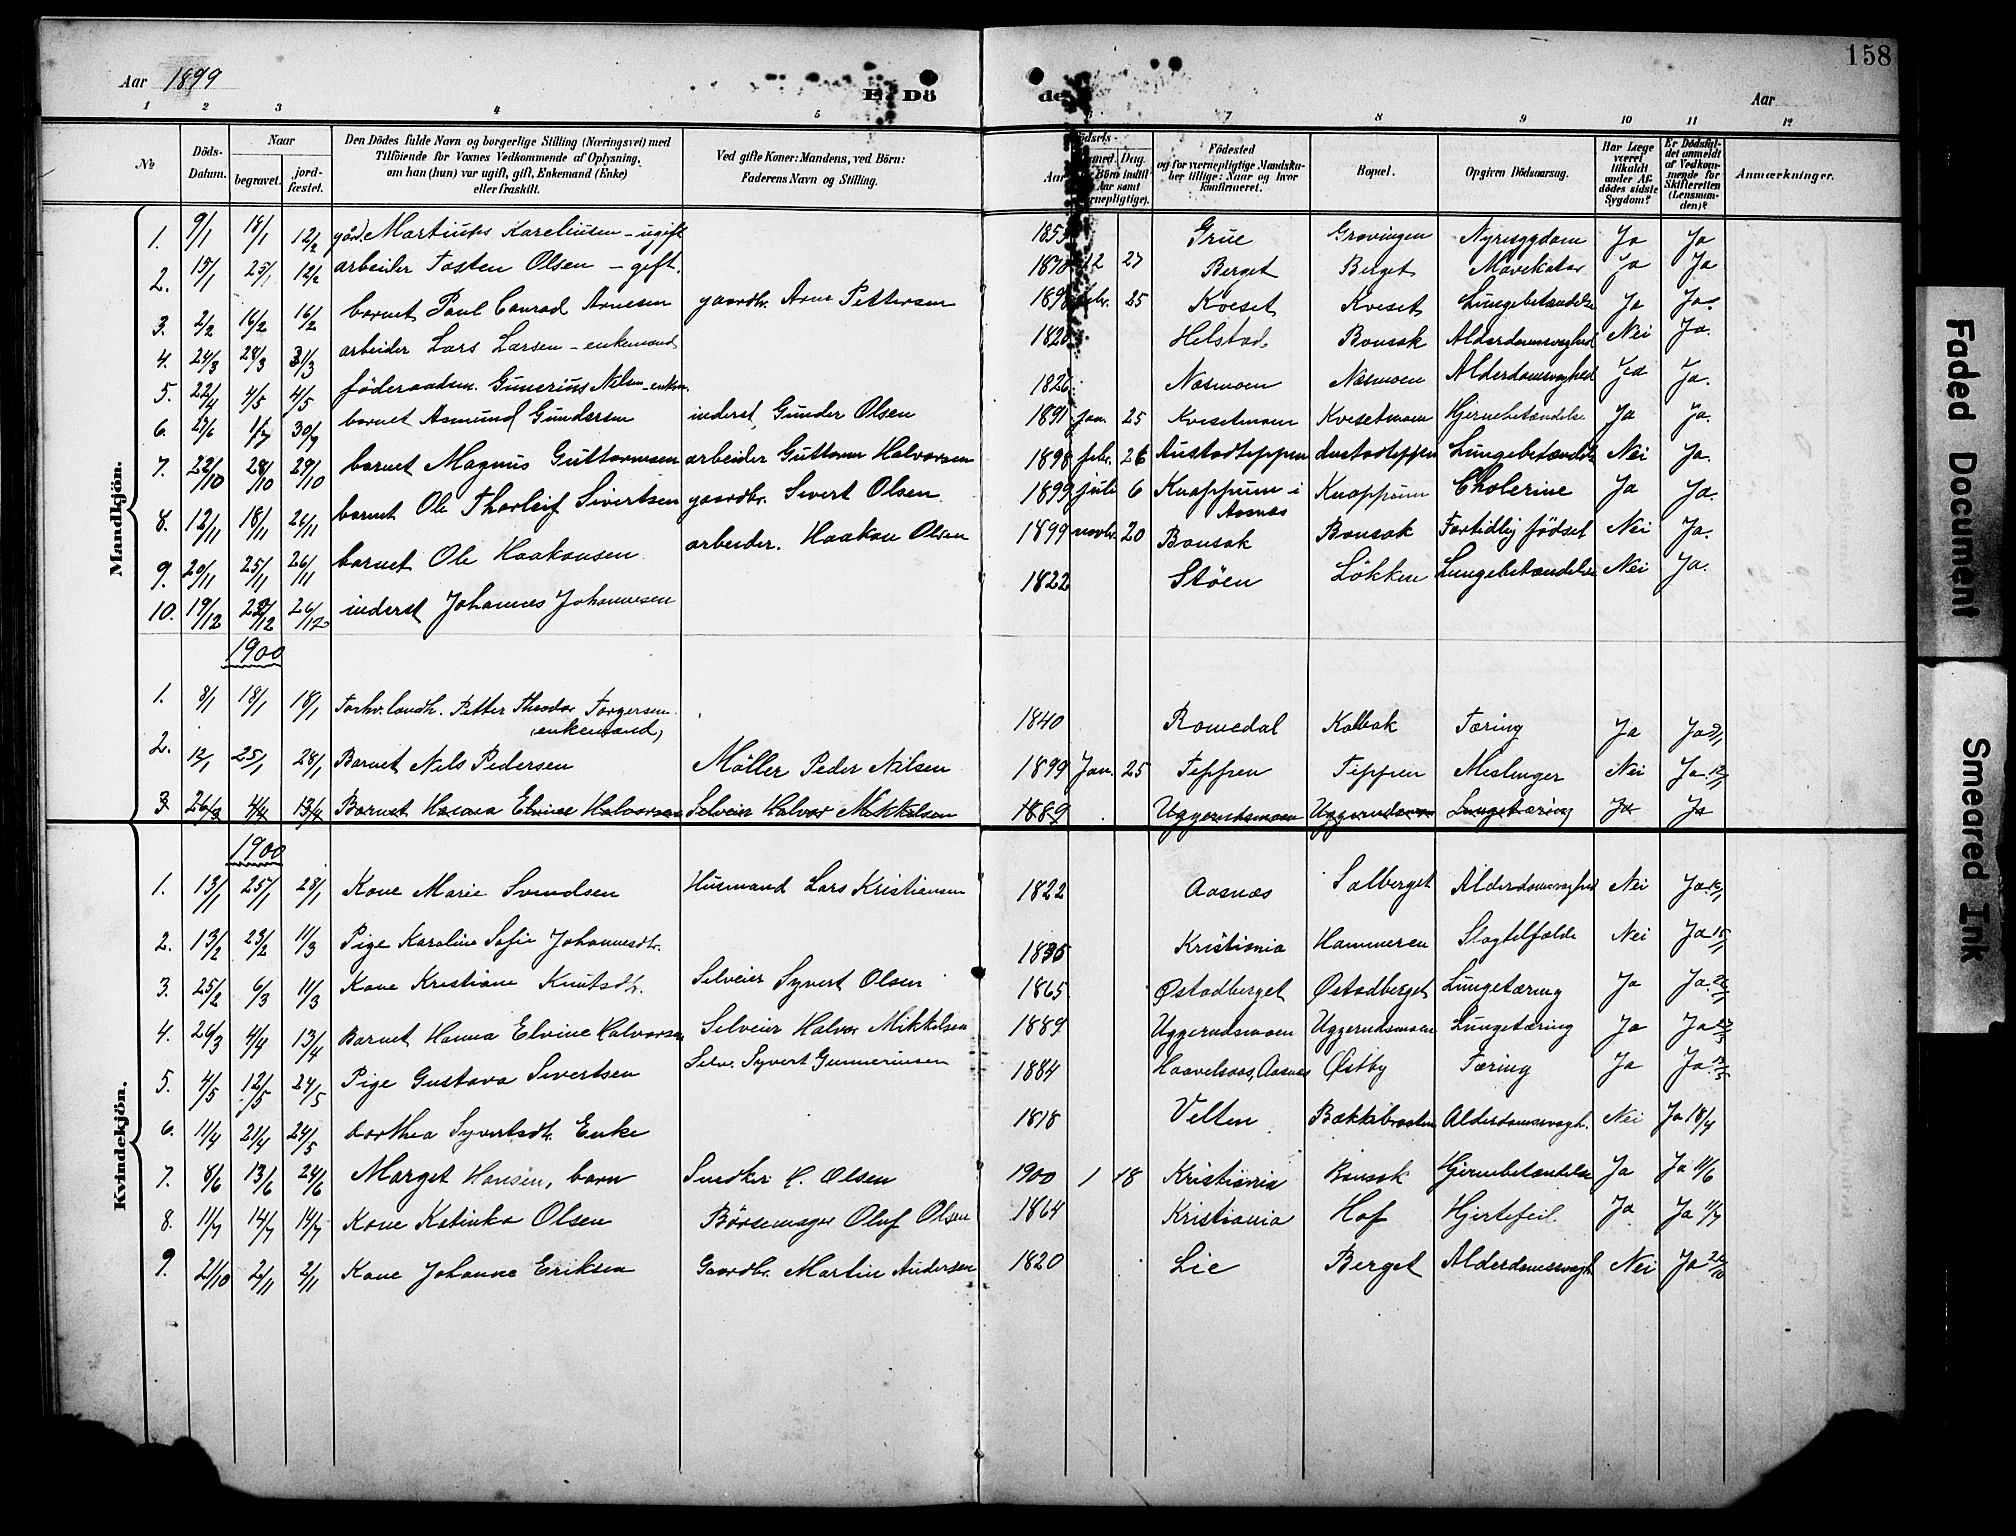 158
Aar 1899
E. Dö de.
Aar
1 2 3 4 5 6 7 8 9 10 11 12
No
Döds-Datum.
Naar
begravet.
jord-fæstet.
Den Dödes fulde Navn og borgerlige Stilling (Næringsvei) med
Tilföiende for Voxnes Vedkommende af Oplysning,
om han (hun) var ugift, gift, Enkemand (Enke)
eller fraskilt.
Ved gifte Koner: Mandens, ved Börn:
Faderens Navn og Stilling.
Aar
Dag.
Födested
og for værnepligtige Mandska-
ber tillige: Naar og hvor
konfirmeret.
Bopæl.
Opgiven Dödsaarsag.
Har Læge
været
tilkaldt
under Af-
dödes sidste
Sygdom?
Er Dödsfal-
det anmeldt
af Vedkom-
mende for
Skifteretten
(Lensman-
den)?
Anmærkninger.
Mandkjön.
1. 9/1 18/1 12/2 Martinus Kareliusen - ugift Grue Grovingen Nyresygdom Ja Ja
2. 15/1 25/1 12/2 arbeider Tosten Olsen - gift. 12 27 Berget Berget Mavekatar Ja Ja
3. 2/2 16/2 16/2 barnet Paul Conrad Arnesen gaardbr. Arne Pettersen febr. 25 Kveset Kveset Lungebetændelse Ja Ja
4. 24/3 28/3 31/3 arbeider Lars Larsen - enkemand Helstad Bousak Alderdomssvaghed Nei Ja.
5. 22/4 4/5 4/5 föderaadsm. Gunerius Nilsen - enkem. 1826 Næsmoen Næsmoen Alderdomssvaghed Ja Ja.
6. 1/7 30/7 barnet Asmund Gundersen inderst Gunder Olsen 1891 jan. 25 Kvesetmoen Kvesetmoen Hjernebetændelse Ja Ja.
7. 22/10 28/10 29/10 barnet Magnus Guttormsen arbeider Guttorm Halvorsen 1898 febr. 26 Austadteppen Austadteppen Lungebetændelse Nei Ja.
8. 12/11 18/11 26/11 barnet Ole Thorleif Sivertsen gaardbr. Sivert Olsen 1899 juli 6 Knappum i Aasnæs Knappum Cholerine Ja Ja.
9. 20/11 25/11 26/11 barnet Ole Haakonsen arbeider. Haakon Olsen 1899 novbr. 20 Bousak Bousak Fortidlig födsel Nei Ja.
10. 19/12 26/12 inderst Johannes Johannesen 1822 Stöen Lökken Lungebetændelse Nei Ja.
1900
1. 8/1 18/1 18/1 Forhv. landh. Petter Theodor Torgersen (enkemand) 1840 Romedal Kolbak Tæring Ja Ja
2. 12/1 25/1 28/1 Barnet Nels Pedersen Möller Peder Nilsen 1899 Jan. 25 Teppen Teppen Meslinger Nei Ja
3. 26/3 4/4 13/4 Barnet Hanna Elvine Halvorsen Selveier Halvor Mikkelsen 1889 Uggerudsmoen Uggerudsmoen Lungetæring Ja Ja
Kvindekjön.
1900
1. 13/1 25/1 28/1 Kone Marie Svendsen Husmand Lars Kristiansen 1822 Aasnæs Solberget Alderdomssvaghed Nei Ja
2. 13/2 23/2 11/3 Pige Karoline Sofie Johannesdtr. Kristiania Hammeren Slagtilfælde Nei Ja
3. 25/2 6/3 11/3 Kone Kristiane Knutsdtr. Selveier Syvert Olsen 1865 Østadberget Østadberget Lungetæring Ja Ja
4. 26/3 4/4 13/4 Barnet Hanna Elvine Halvorsen Selveier Halvor Mikkelsen 1889 Uggerudsmoen Uggerudsmoen Lungetæring Ja Ja
5. 4/5 12/5 24/5 Pige Gustava Sivertsen Selv. Syvert Gunneriusen 1884 Haavelsaas, Aasnæs Østby Tæring Ja Ja
6. 11/4 21/4 24/5 Dorthea Syvertsdtr. Enke 1818 Velten Bækkebraaten Alderdomssvagh. Nei Ja 18/4
7. 8/6 13/6 24/6 Marget Hansen, barn Snedker H. Olsen 1900 1 18 Kristiania Bousak Hjernebetændelse Ja Ja 11/6
8. 11/7 14/7 14/7 Kone Katinka Olsen Börsemager Oluf Olsen 1864 Kristiania Hof Hjertefeil. Ja Ja 11/7
9. 21/10 2/11 2/11 Kone Johanne Eriksen Gaardbr. Martin Andersen 1820 Lie Berget Alderdomssvagh. Nei Ja
Faded Document
Smeared Ink